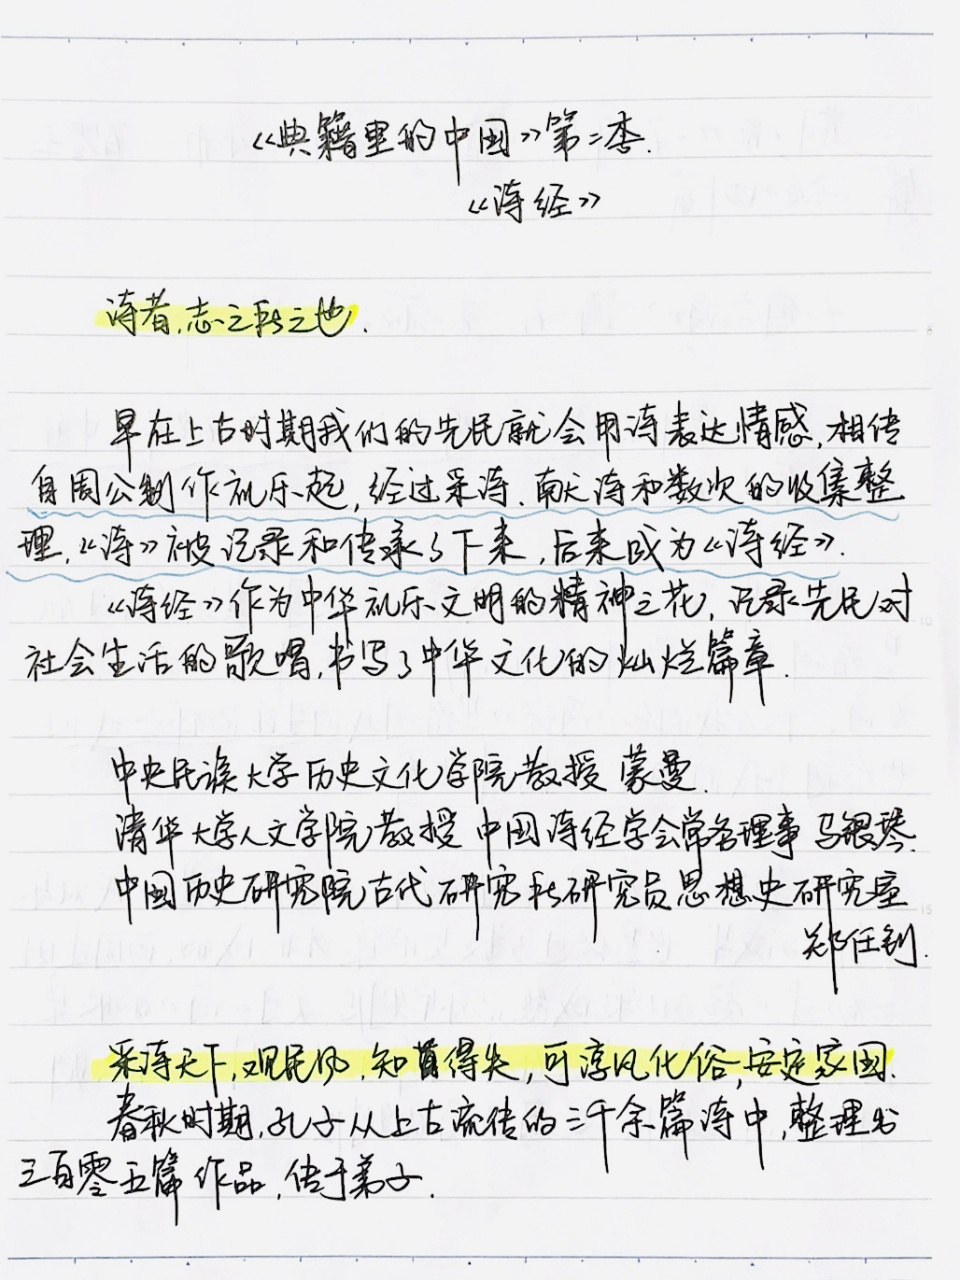 《典籍里的中国》第二季.
《诗经》
诗者,志之所之也.
早在上古时期我们的先民就会用诗表达情感,相传
自周公制作礼乐起,经过采诗、献诗和数次的收集整
理,《诗》被记录和传承了下来,后来成为《诗经》.
《诗经》作为中华礼乐文明的精神之花,记录先民对
社会生活的歌唱,书写了中华文化的灿烂篇章.
中央民族大学历史文化学院教授 蒙曼.
清华大学人文学院教授 中国诗经学会常务理事 马银琴.
中国历史研究院古代研究所研究员思想史研究室
郑任钊.
采诗天下,观民风,知得失,可淳风化俗,安定家国.
春秋时期,孔子从上古流传的三千余篇诗中,整理出
三百零五篇作品,传于弟子.